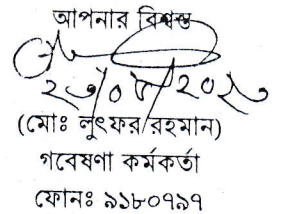 আপনার বিশ্বস্ত
(মোঃ লুৎফর রহমান)
গবেষণা কর্মকর্তা
ফোনঃ ৯১৮০৭৯৭